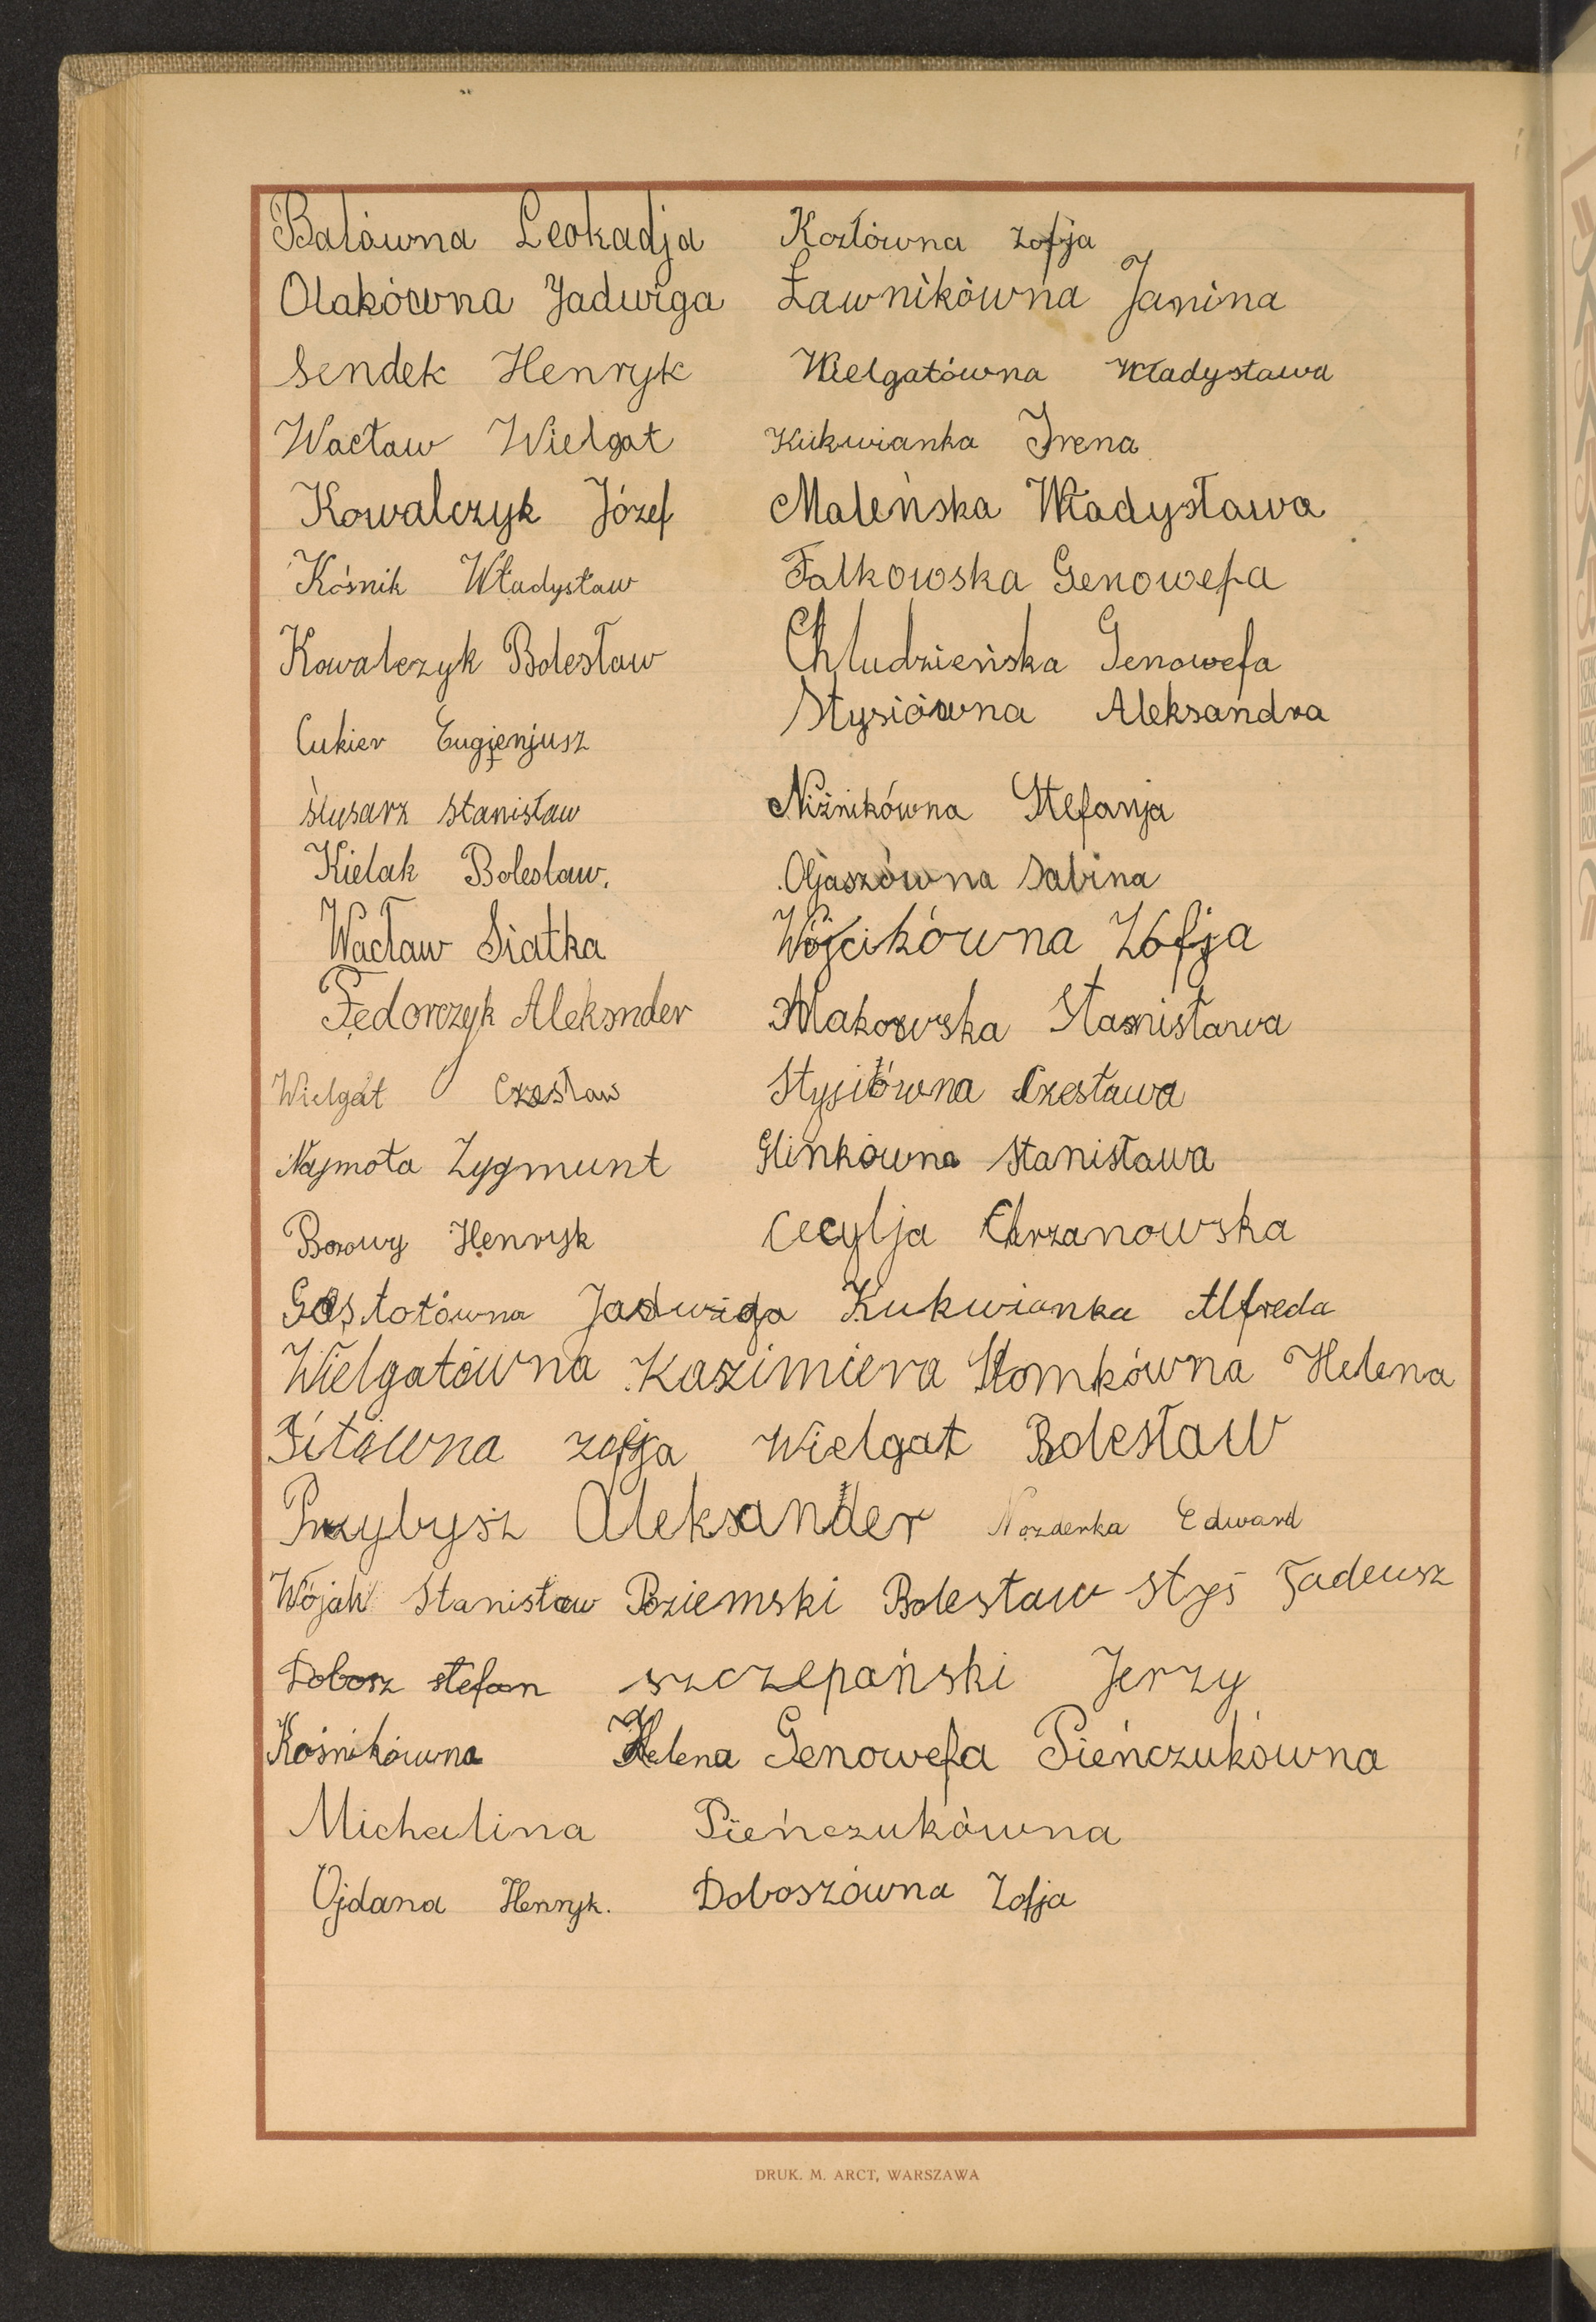 Balówna Leokadja Kozłówna Zofja
Olakówna Jadwiga Ławnikówna Janina
Sendek Henryk Wielgatówna Władysława
Wacław Wielgat Kukwianka Irena
Kowalczyk Józef Maleńska Władysława
Kośnik Władysław Falkowska Genowefa
Kowalczyk Bolesław Chludzieńska Genowefa
Cukier Eugienjusz Stysiówna Aleksandra
Ślusarz Stanisław Niźnikówna Stefanja
Kielak Boleslaw. Oljaszówna Sabina
Wacław Siatka Wójcikówna Zofja
Fedorczyk Aleksnder Makowska Stanisława
Wielgat Czesław Stysiówna Czesława
Najmoła Zygmunt Glinkówna Stanisława
Borowy Henryk Cecylja Chrzanowska
Gostołówna Jadwiga Kukwianka Alfreda
Wielgatówna Kazimiera Słomkówna Helena
Zofja Wielgat Bolesław
Przybysz Aleksander Nozderka Edward
Wójcik Stanisław Poziemski Bolesław Styś Tadeusz
Dobosz Stefan Szczepański Jerzy
Kośnikówna Helena Genowefa Pieńczukówna
Michalina Pieńczukówna
Ojdana Henryk. Doboszówna Zofja
DRUK. M. ARCT, WARSZAWA